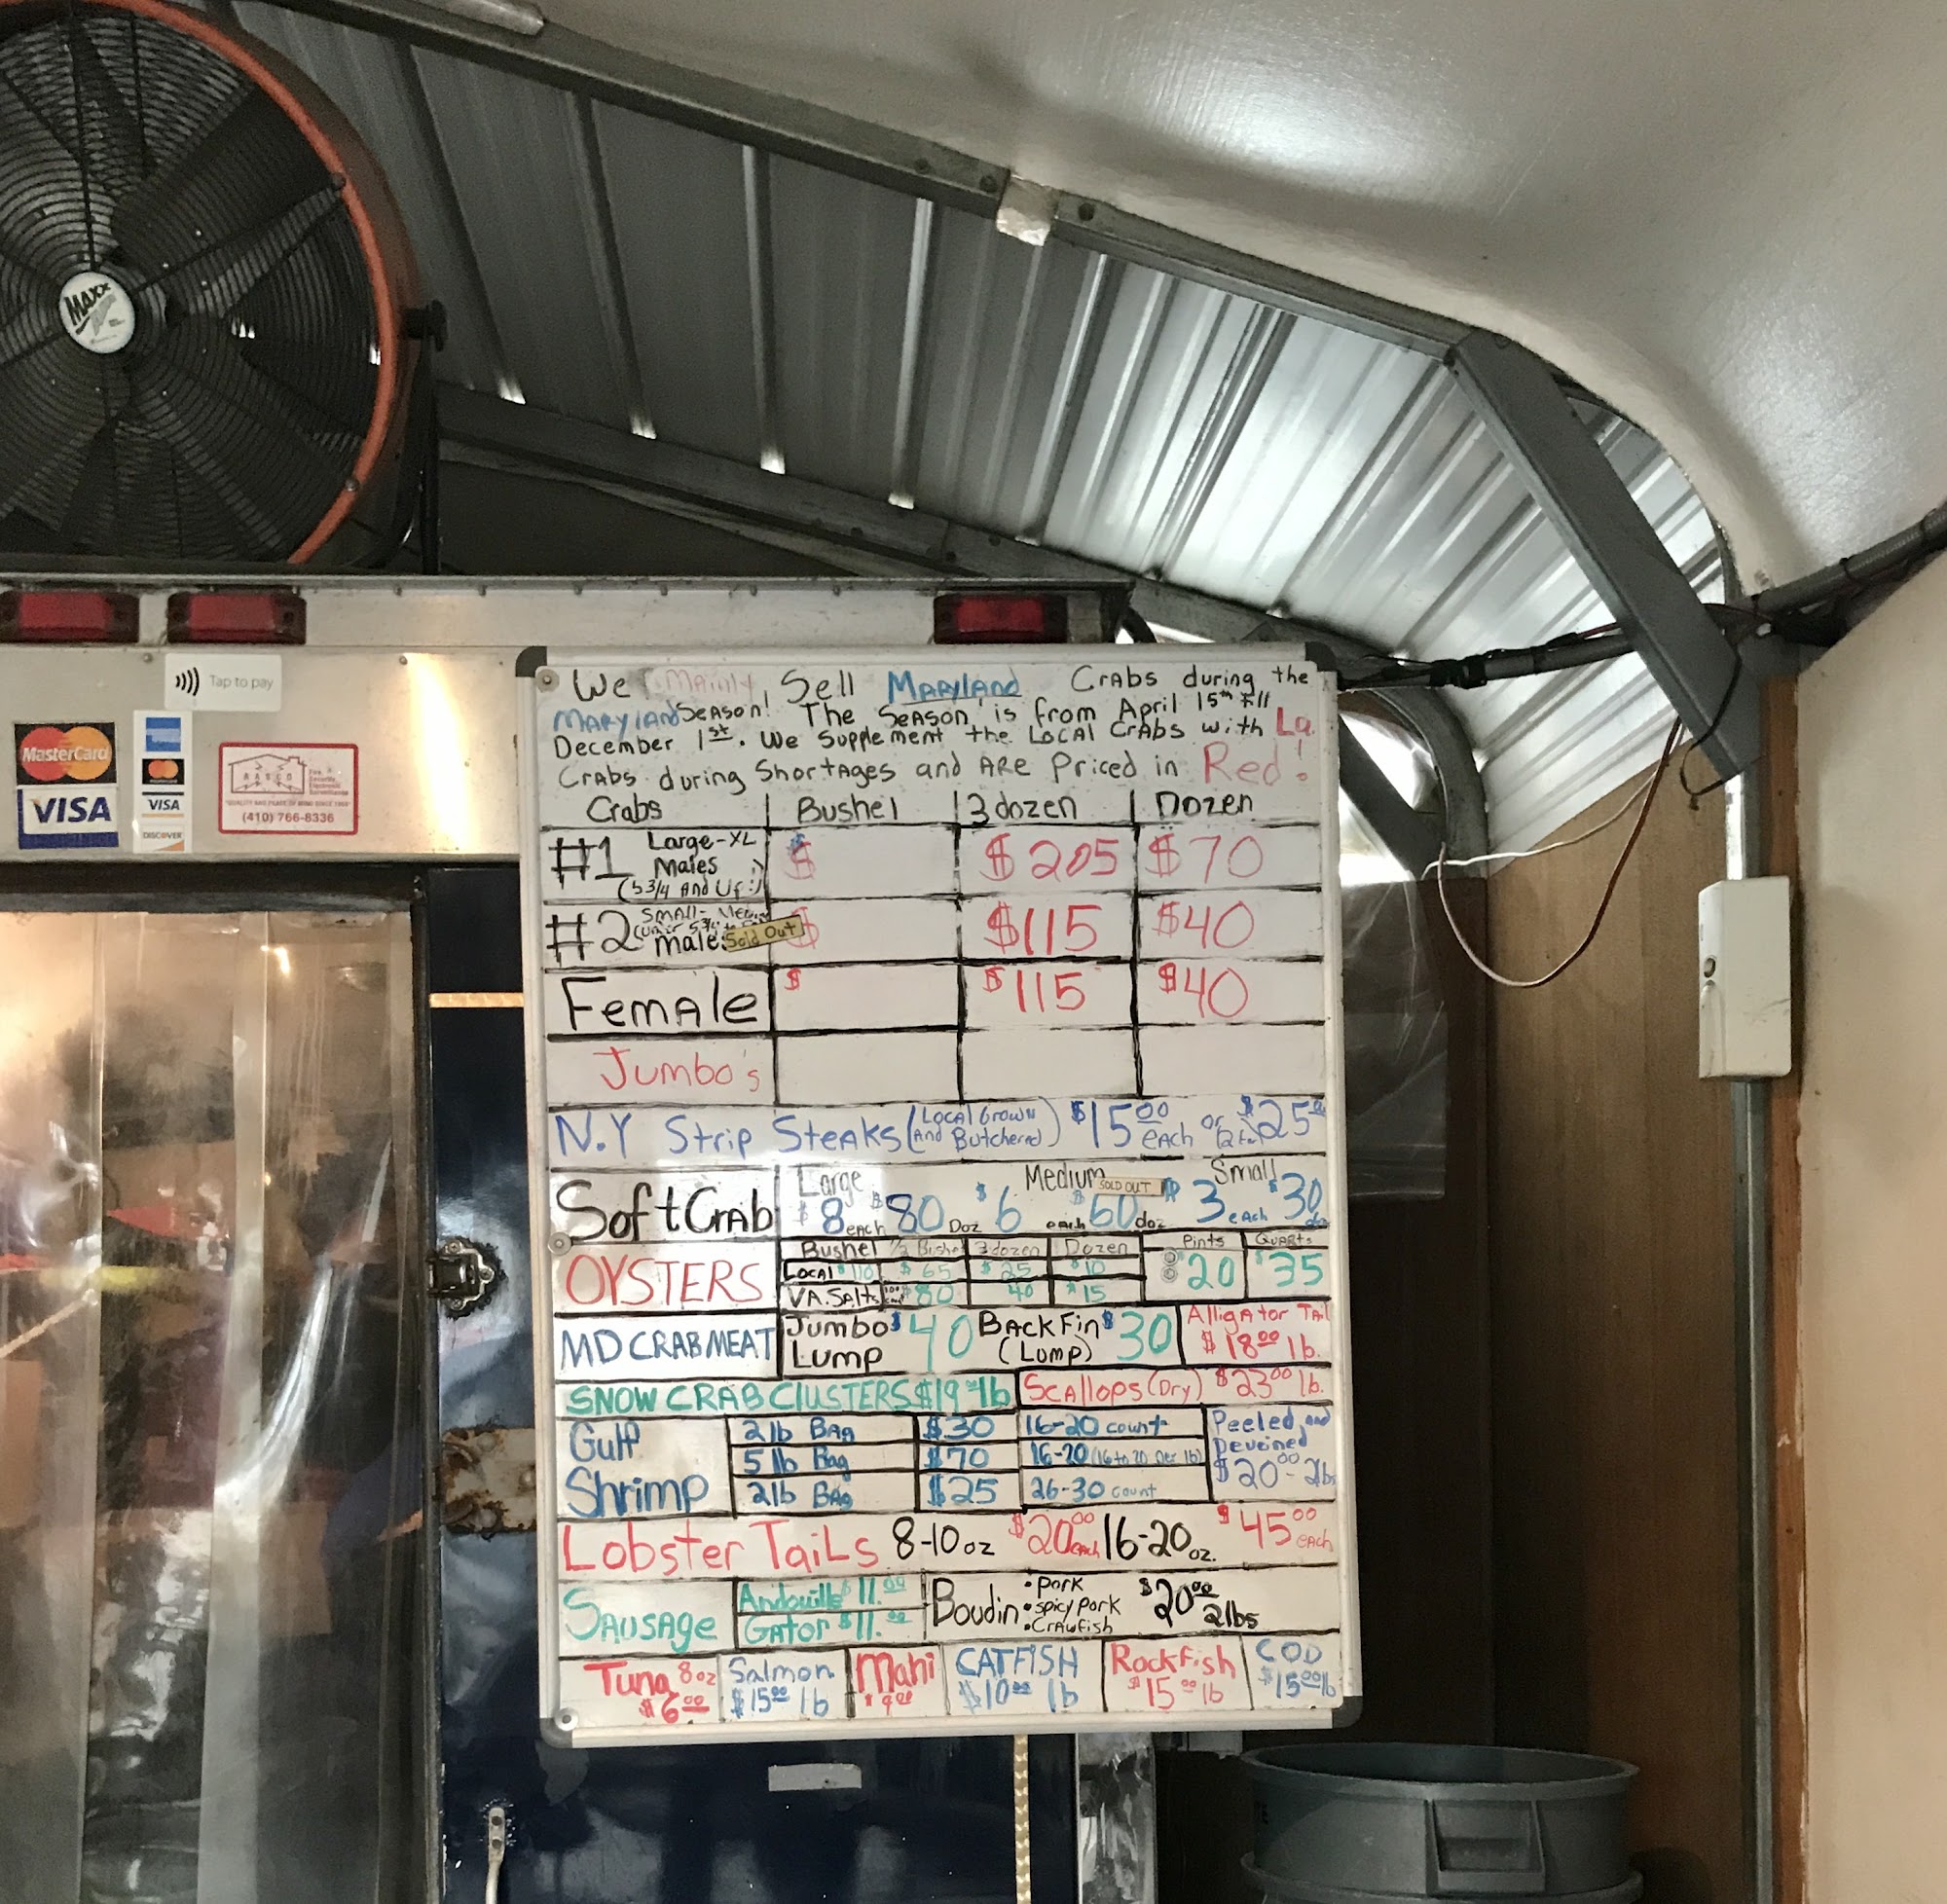 MAXX
Tap to pay
MasterCard
VISA
VISA
DISCOVER
RASCO
Fire
Security
Electronic
Surveillance
"QUALITY AND PEACE OF MIND SINCE 1969"
(410) 766-8336
We Mainly Sell Maryland Crabs during the
Maryland Season! The Season is from April 15th till
December 1st. We Supplement the Local Crabs with La.
Crabs during Shortages and ARE Priced in Red!
Crabs Bushel 3 dozen Dozen
#1 Large-XL Males (5 3/4 And Up!) $ $205 $70
#2 Small-Medium Males Sold Out $ $115 $40
Female $ $115 $40
Jumbo's
N.Y Strip Steaks (Local Grown And Butchered) $15.00 each or $25.00
Soft Crab Large $8 each $80 Doz Medium SOLD OUT $6 each $60 doz Small $3 each $30
OYSTERS Bushel 1/2 Bushel 3 dozen Dozen Pints Quarts
Local $110 $65 $25 $10 $20 $35
VA. Salts $80 40 $15
MD CRAB MEAT Jumbo Lump $40 Back Fin (Lump) $30 Alligator Tail $18.00 lb.
SNOW CRAB CLUSTERS $19 lb Scallops (Dry) $23.00 lb.
Gulf Shrimp 2lb Bag $30 16-20 count Peeled and Deveined $20.00 - 2lbs
5 lb Bag $70 16-20 (16 to 20 per lb)
2lb Bag $25 26-30 count
Lobster Tails 8-10 oz $20.00 each 16-20 oz. $45.00 each
Sausage Andouille $11.00 Boudin • Pork • Spicy Pork • Crawfish $20.00 2lbs
Gator $11.00
Tuna 8oz $6.00 Salmon $15.00 lb Mahi $9.00 CATFISH $10.00 lb Rockfish $15.00 lb COD $15.00 lb